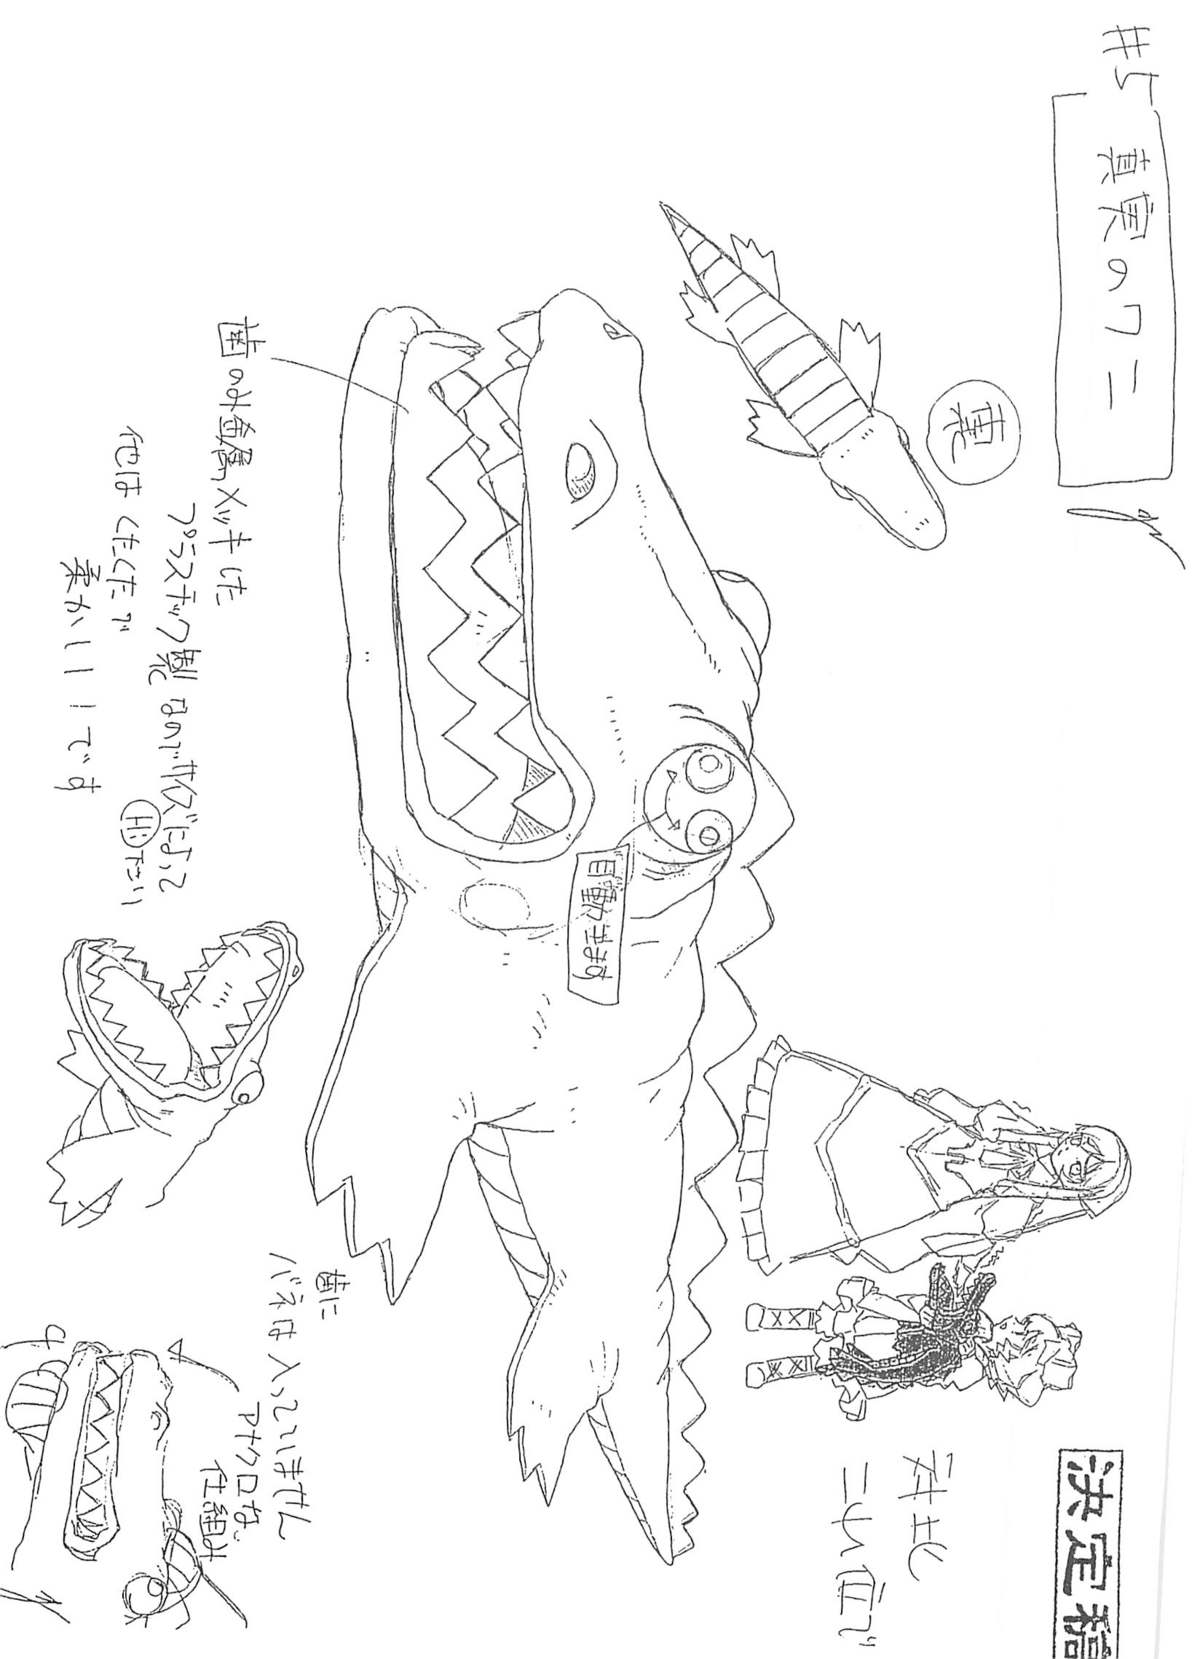 #5
真実のワニ
裏
決定稿
対比
これ位で
目動きます
歯のみ金属メッキした
プラスチック製なのでサイズによって
出たり
他はくたくたで
柔かいいいです
歯に
バネは入っていません
アナクロな
仕組み